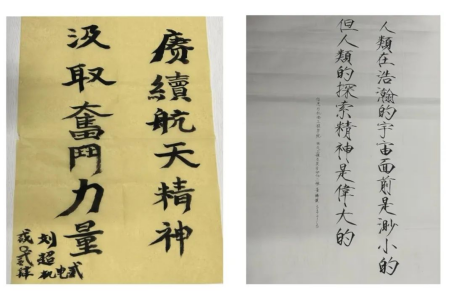 赓續航天精神
汲取奮鬥力量
刘超
人類在浩瀚的宇宙面前是渺小的
但人類的探索精神是偉大的